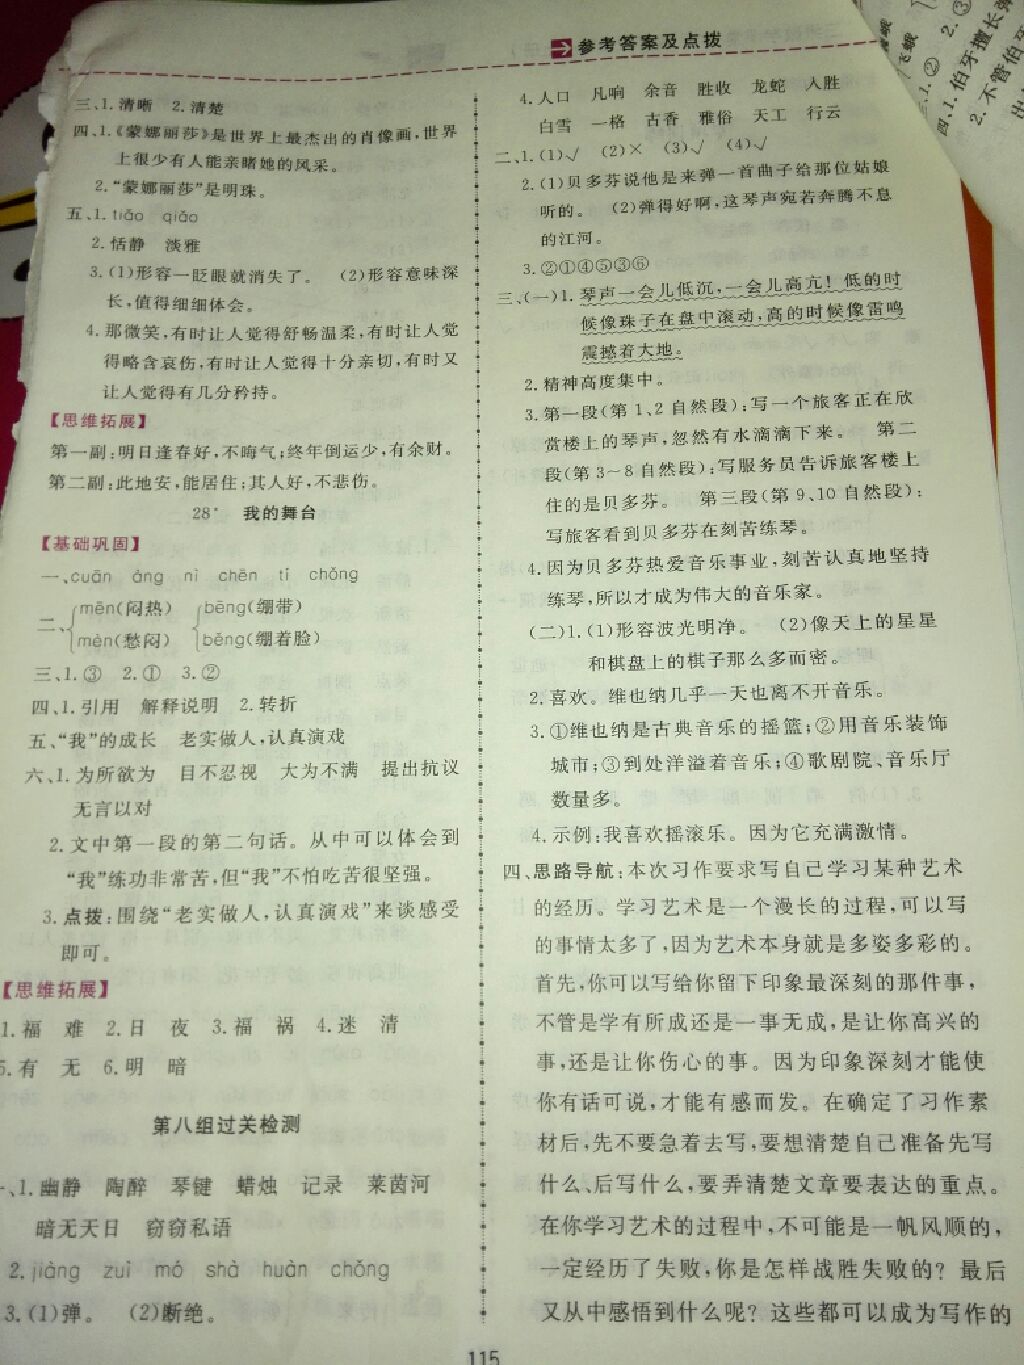 参考答案及点拨
三、1.清晰　2.清楚
四、1.《蒙娜丽莎》是世界上最杰出的肖像画,世界
上很少有人能亲睹她的风采。
2.“蒙娜丽莎”是明珠。
五、1.tiǎo　qiǎo
2.恬静　淡雅
3.(1)形容一眨眼就消失了。　(2)形容意味深
长,值得细细体会。
4.那微笑,有时让人觉得舒畅温柔,有时让人觉
得略含哀伤,有时让人觉得十分亲切,有时又
让人觉得有几分矜持。
【思维拓展】
第一副:明日逢春好,不晦气;终年倒运少,有余财。
第二副:此地安,能居住;其人好,不悲伤。
28*　我的舞台
【基础巩固】
一、cuān　áng　nì　chēn　tí　chǒng
二、
mēn(闷热)　bēng(绷带)
mèn(愁闷)　běng(绷着脸)
三、1.③　2.①　3.②
四、1.引用　解释说明　2.转折
五、“我”的成长　老实做人,认真演戏
六、1.为所欲为　目不忍视　大为不满　提出抗议
无言以对
2.文中第一段的第二句话。从中可以体会到
“我”练功非常苦,但“我”不怕吃苦很坚强。
3.点拨:围绕“老实做人,认真演戏”来谈感受
即可。
【思维拓展】
1.福　难　2.日　夜　3.福　祸　4.迷　清
5.有　无　6.明　暗
第八组过关检测
一、1.幽静　陶醉　琴键　蜡烛　记录　莱茵河
暗无天日　窃窃私语
2.jiàng　zuì　mó　shà　huàn　chǒng
3.(1)弹。　(2)断绝。
4.人口　凡响　余音　胜收　龙蛇　入胜
白雪　一格　古香　雅俗　天工　行云
二、1.(1)√　(2)×　(3)√　(4)√
2.(1)贝多芬说他是来弹一首曲子给那位姑娘
听的。　(2)弹得好啊,这琴声宛若奔腾不息
的江河。
3.②①④⑤③⑥
三、(一)1.琴声一会儿低沉,一会儿高亢!低的时
候像珠子在盘中滚动,高的时候像雷鸣
震撼着大地。
2.精神高度集中。
3.第一段(第1、2自然段):写一个旅客正在欣
赏楼上的琴声,忽然有水滴滴下来。　第二
段(第3~8自然段):写服务员告诉旅客楼上
住的是贝多芬。　第三段(第9、10自然段):
写旅客看到贝多芬在刻苦练琴。
4.因为贝多芬热爱音乐事业,刻苦认真地坚持
练琴,所以才成为伟大的音乐家。
(二)1.(1)形容波光明净。　(2)像天上的星星
和棋盘上的棋子那么多而密。
2.喜欢。维也纳几乎一天也离不开音乐。
3.①维也纳是古典音乐的摇篮;②用音乐装饰
城市;③到处洋溢着音乐;④歌剧院、音乐厅
数量多。
4.示例:我喜欢摇滚乐。因为它充满激情。
四、思路导航:本次习作要求写自己学习某种艺术
的经历。学习艺术是一个漫长的过程,可以写
的事情太多了,因为艺术本身就是多姿多彩的。
首先,你可以写给你留下印象最深刻的那件事,
不管是学有所成还是一事无成,是让你高兴的
事,还是让你伤心的事。因为印象深刻才能使
你有话可说,才能有感而发。在确定了习作素
材后,先不要急着去写,要想清楚自己准备先写
什么、后写什么,要弄清楚文章要表达的重点。
在你学习艺术的过程中,不可能是一帆风顺的,
一定经历了失败,你是怎样战胜失败的?最后
又从中感悟到什么呢?这些都可以成为写作的
115
飞蛾
三、1.②　2.③
四、1.伯牙擅长弹
2.不管伯牙